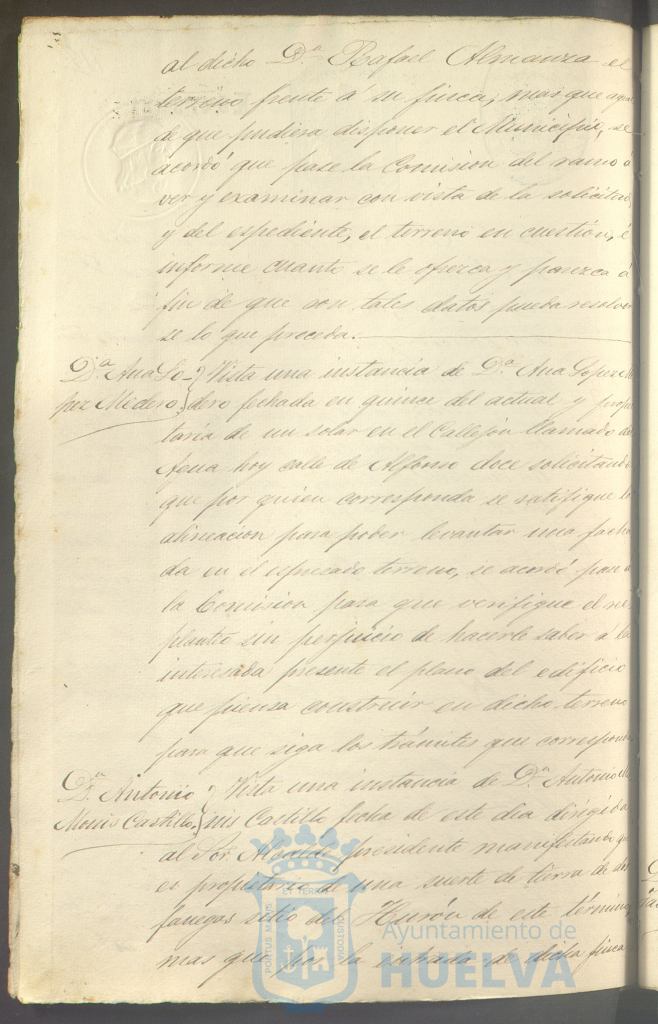 al dicho D.ⁿ Rafael Almanza el
terreno frente á su finca, mas que
de que pudiera disponer el Municipio, se
acordó que pase la Comision del ramo á
ver y examinar con vista de la solicitud
y del espediente, el terreno en cuestión, é
informe cuanto se le ofrezca y parezca á
fin de que con tales datos pueda resolver
se lo que proceda.
D.ª Ana Lo-
pez Medero
Vista una instancia de D.ª Ana Lopez Me
dero fechada en quince del actual y propie
taria de un solar en el Callejón llamado del
Agua hoy calle de Alfonso doce solicitando
que por quien corresponda se ratifique la
alineacion para poder levantar una facha
da en el espresado terreno, se acordó pase á
la Comision para que verifique el re
planteo sin perjuicio de hacerle saber á la
interesada presente el plano del edificio
que piensa construir en dicho terreno
para que siga los trámites que corresponda
D.ⁿ Antonio
Monis Castillo
Vista una instancia de D.ⁿ Antonio Mo
nis Castillo fecha de este dia dirigida
al Sor. Alcalde presidente manifestando que
es propietario de una suerte de tierra de dos
fanegas sitio del Hurón de este término
mas que por la entrada de dicha finca
PORTUS MARIS ET TERRÆ CUSTODIA
Ayuntamiento de
HUELVA